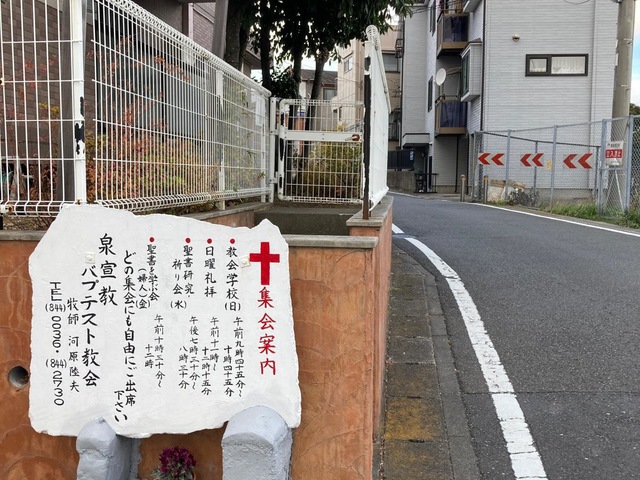 集会案内
・教会学校(日) 午前九時四十五分〜
十時四十五分
・日曜礼拝 午前十一時〜
十二時十五分
・聖書研究・
祈り会(水) 午後七時三十分〜
八時三十分
・聖書を学ぶ会
(婦人)(金) 午前十時三十分〜
十二時
どの集会にも自由にご出席
下さい
泉宣教
バプテスト教会
牧師 河原陸夫
TEL(844)0036・(844)2730